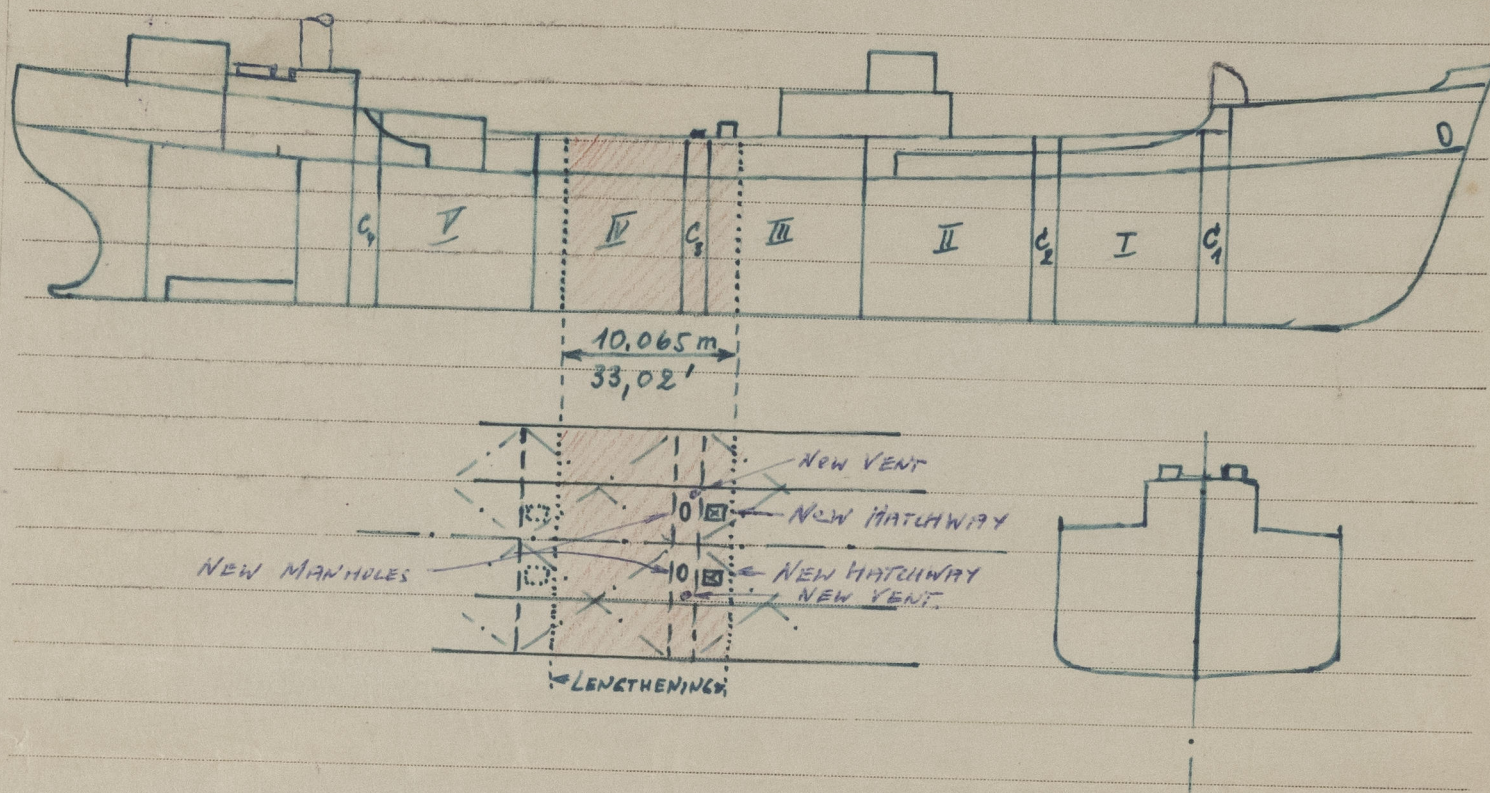 C4 V IV C3 III II C2 I C1
10,065 m
33,02'
NEW VENT
NEW HATCHWAY
NEW MANHOLES
NEW HATCHWAY
NEW VENT.
LENGTHENING